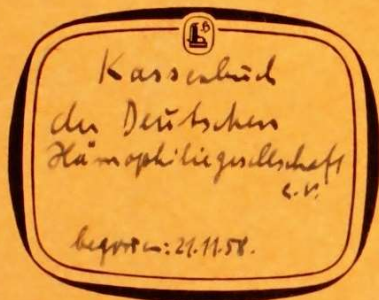 Kassenbuch
der Deutschen
Hämophiliegesellschaft
e.V.
begonnen: 21.11.58.